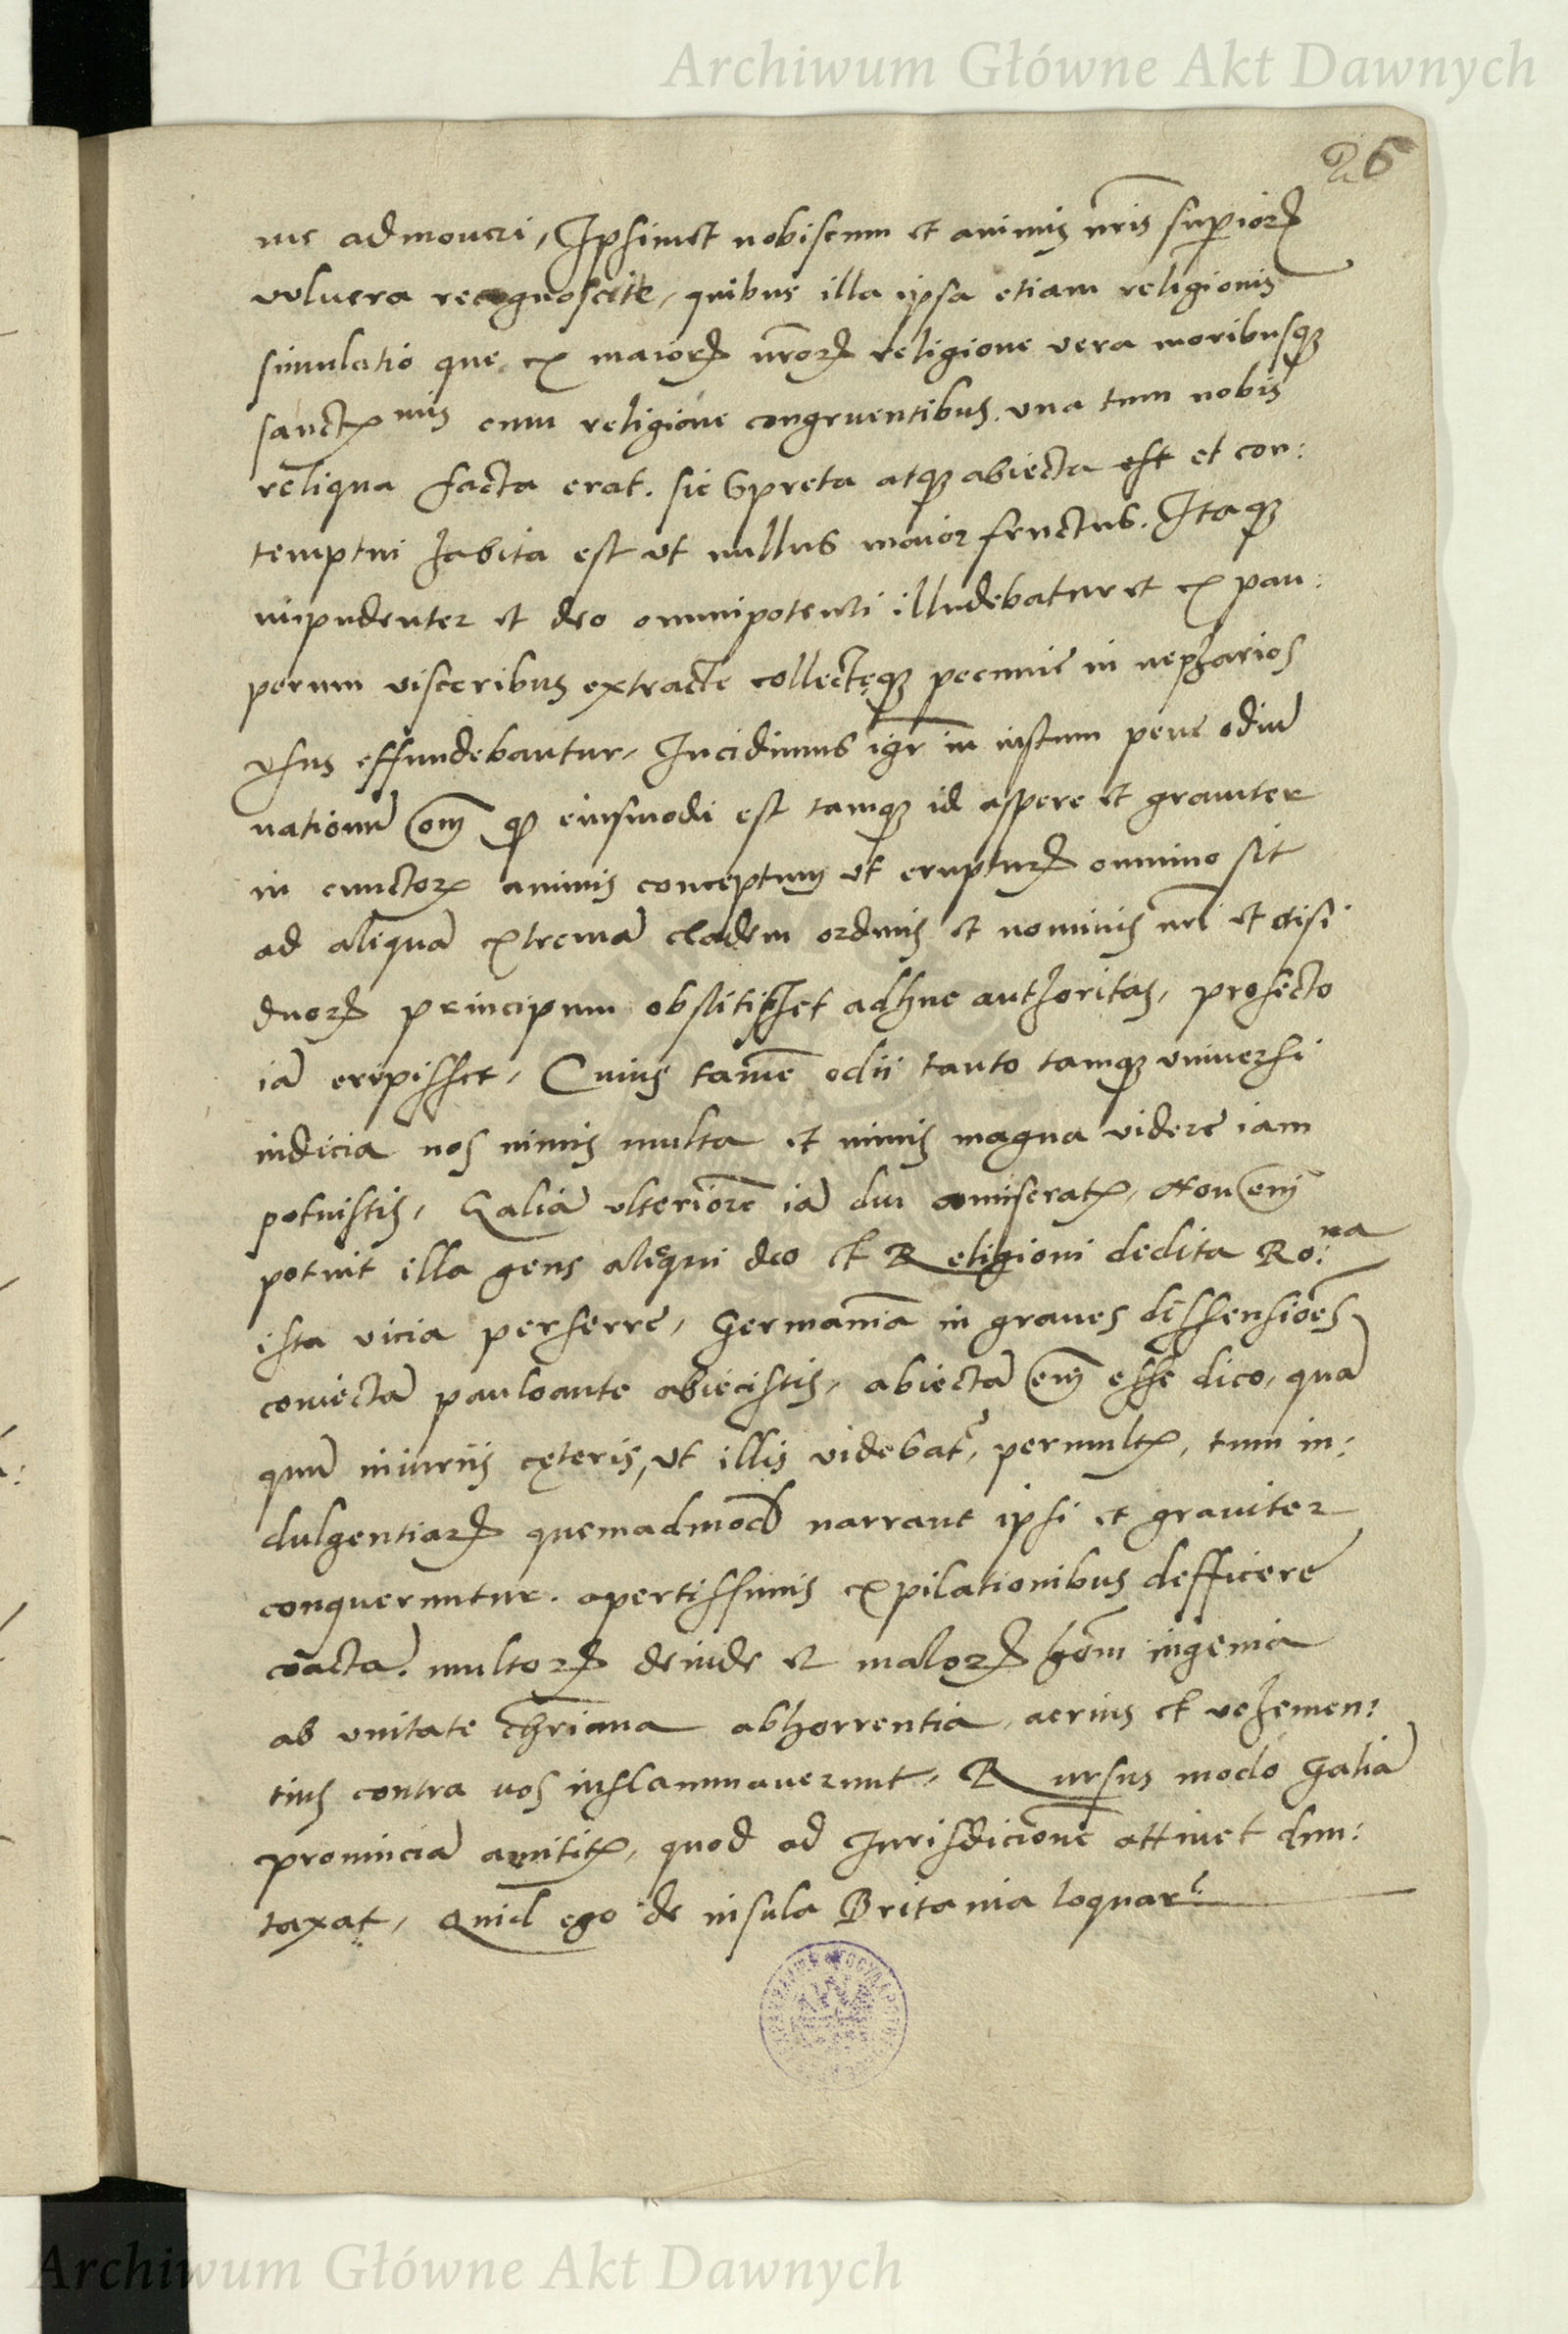 Archiwum Główne Akt Dawnych
26
me admoueri, Ipsimet nobiscum et animis nr̄is superiorꝝ
vulnera recognoscite, quibus illa ipsa etiam religionis
simulatio que ex maiorꝝ nr̄orꝝ religione vera moribusqꝫ
sanctiss mis cum religione congruentibus una tum nobis
reliqua facta erat. sic spreta atqꝫ abiecta est et con:
temptui habita est ut nullus maior fructus. Itaqꝫ
impudenter et deo omnipotenti illudebatur et ex pau:
perum visceribus extracte collectęqꝫ pecunie in nepharios
vsus effundebantur, Incidimus igr̄ in iustum pene odiū
nationū om̄ qd eiusmodi est tamqꝫ id aspere et grauiter
in cunctorꝝ animis conceptum ut erupturꝝ omnino sit
ad aliquā extremā cladem ordinis et nominis nr̄i et nisi
duorꝝ principum obstitisset adhuc authoritas, profecto
iā erupisset, Cuius tamē odii tanto tamqꝫ uniuersi
indicia uos nimis multa et nimis magna videre iam
potuistis, Galiā ulteriorē iā diu amiseratꝭ, Non em̄
potuit illa gens alioqui deo et Religioni dedita Ro:na
ista vicia perferre, Germaniā in graues dissensiōes
coniectā pauloante abiecistis, abiectā em̄ esse dico, quā
quū iniuriis cęteris, ut illis videbat', permultꝭ, tum in:
dulgentiarꝝ quemadmod narrant ipsi et grauiter
conqueruntur. apertissimis expilationibus defficere
coacta. multorꝝ deinde et malorꝝ hom̄ ingenia
ab unitate chr̄iana abhorrentia, acrius et vehemen:
tius contra uos inflammauerunt, Rursus modo Galiā
prouinciā amititꝭ, quod ad Jurisdicionē attinet dun:
taxat, Quid ego de insula Britania loquar?
Archiwum Główne Akt Dawnych